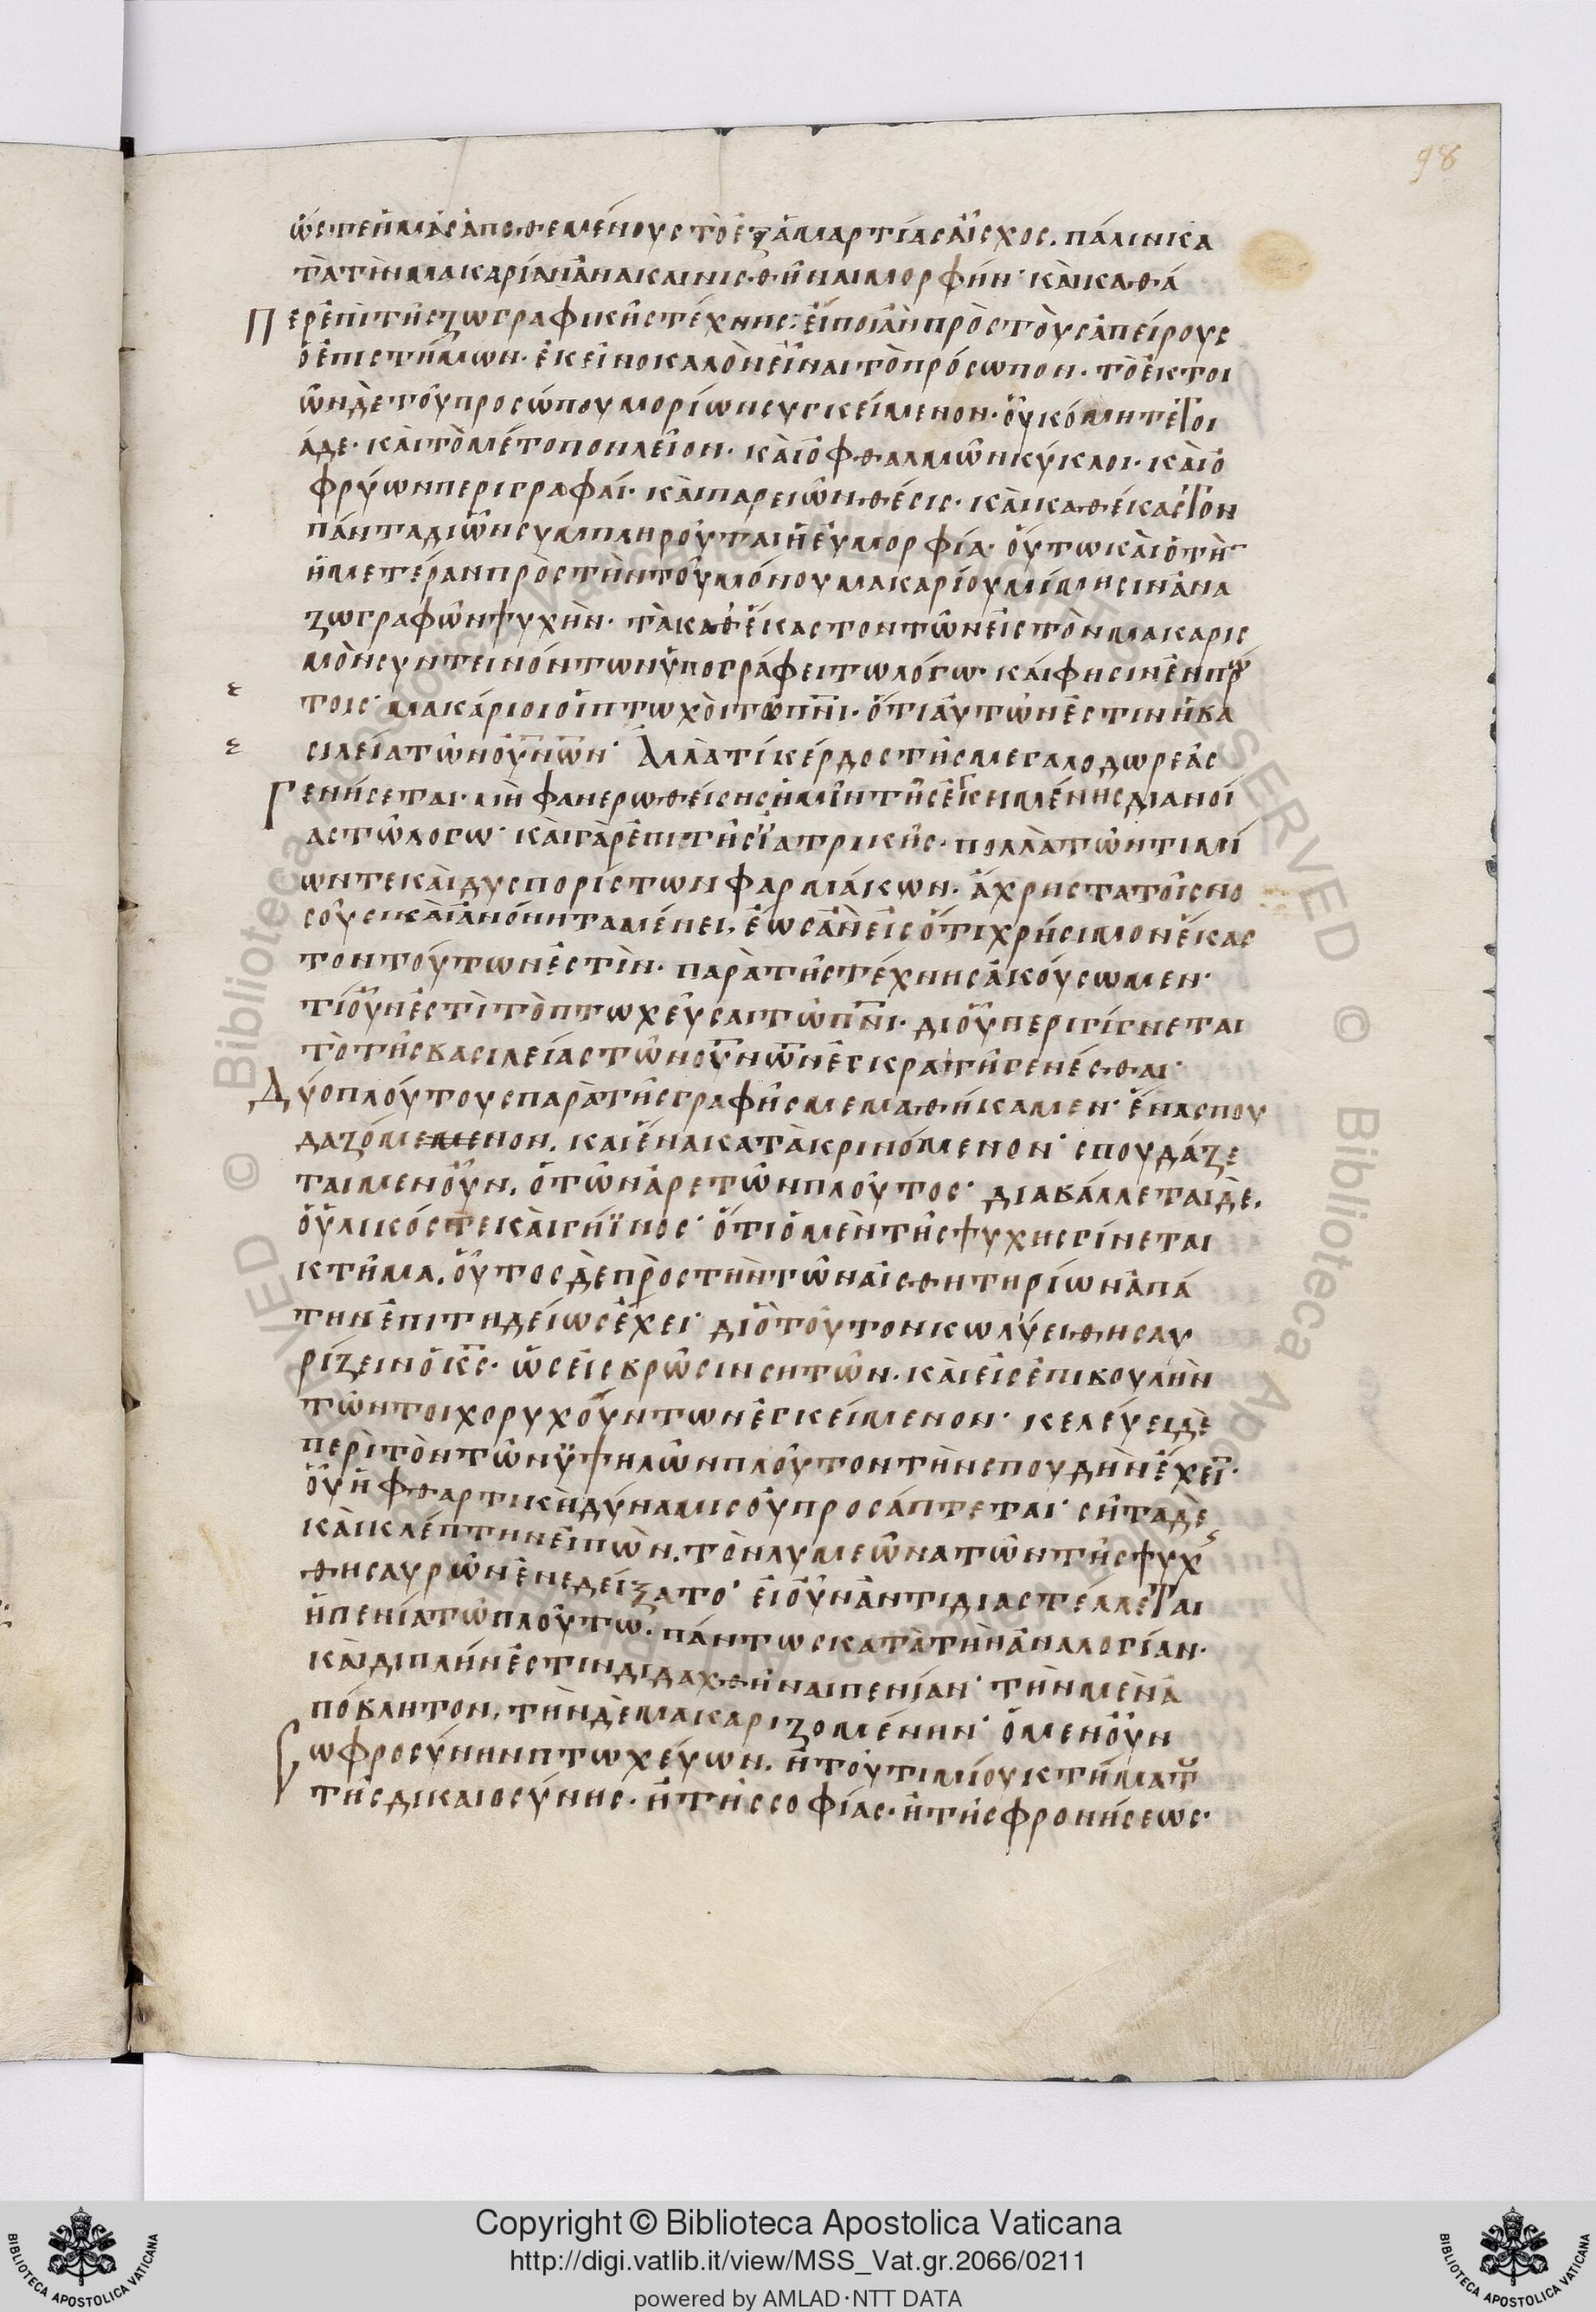 98
ὥστε ἡμᾶς ἀποθεμένους τὸ ἐξ ἁμαρτίας αἶσχος. πάλιν κα
τὰ τὴν μακαρίαν ἀνακαινισθῆναι μορφήν· καὶ καθά
Περ ἐπὶ τῆς ζωγραφικῆς τέχνης· εἴποι ἂν πρὸς τοὺς ἀπείρους
ὁ ἐπιστήμων. ἐκεῖνο καλὸν εἶναι τὸ πρόσωπον. τὸ ἐκ τοι
ῶνδε τοῦ προσώπου μορίων συγκείμενον. οὗ κόμη τε τοι
άδε. καὶ τὸ μέτοπον λεῖον. καὶ ὀφθαλμῶν κύκλοι. καὶ ὀ
φρύων περιγραφαί. καὶ παρειῶν θέσις. καὶ καθ' ἕκαστον
πάντα δι' ὧν συμπληροῦται ἡ εὐμορφία. οὕτω καὶ ὁ τὴν
ἡμετέραν πρὸς τὴν τοῦ μόνου μακαρίου μίμησιν ἀνα
ζωγραφῶν ψυχήν. τὰ καθ' ἕκαστον τῶν εἰς τὸν μακαρισ
μὸν συντεινόντων ὑπογράφει τῶ λόγω. καί φησιν ἐν πρώ
ε τοις· μακάριοι οἱ πτωχοὶ τῶ πνι. ὅτι αὐτῶν ἐστιν ἡ βα
ε σιλεία τῶν οὐνων· Ἀλλὰ τί κέρδος τῆς μεγαλοδωρεᾶς
Γενήσεται. μὴ φανερωθείσης ἡμῖν τῆς ἐγκειμένης διανοί
ας τῶ λόγω· καὶ γὰρ ἐπὶ τῆς ἰατρικῆς. πολλὰ τῶν τιμί
ων τε καὶ δυσπορίστων φαρμάκων. ἄχρηστα τοῖς νο
σοῦσι καὶ ἀνόνητα μένει, ἕως ἂν εἰς ὅτι χρήσιμον ἕκασ
τον τούτων ἐστὶν. παρὰ τῆς τέχνης ἀκούσωμεν·
τί οὖν ἐστὶ τὸ πτωχεῦσαι τῶ πνι. δι' οὗ περιγίγνεται
τὸ τῆς βασιλείας τῶν οὐνων ἐγκρατῆ γενέσθαι·
Δύο πλούτους παρὰ τῆς γραφῆς μεμαθήκαμεν· ἕνα σπου
δαζόμεμενον. καὶ ἕνα κατακρινόμενον· σπουδάζε
ται μεν οὖν. ὁ τῶν ἀρετῶν πλοῦτος· διαβάλλεται δὲ.
ὁ ὑλικός τε καὶ γήϊνος· ὅτι ὁ μὲν τῆς ψυχης γίνεται
κτῆμα. οὗτος δὲ πρὸς τὴν τῶν αἰσθητηρίων ἀπά
την ἐπιτηδείως ἔχει· διὸ τοῦτον κωλύει θησαυ
ρίζειν ὁ κς. ὡς εἰς βρῶσιν σητῶν. καὶ εἰς ἐπιβουλὴν
τῶν τοιχορυχούντων ἐγκείμενον· κελεύει δὲ
περὶ τὸν τῶν ὑψηλῶν πλοῦτον τὴν σπουδὴν ἔχειν.
οὗ ἡ φθαρτικὴ δύναμις οὐ προσάπτεται· σῆτα δὲ
καὶ κλέπτην εἰπὼν. τὸν λυμεῶνα τῶν τῆς ψυχῆς
θησαυρῶν ἐνεδείξατο· εἰ οὖν ἀντιδιαστέλλεται
ἡ πενία τῶ πλούτω. πάντως κατὰ τὴν ἀναλογίαν.
καὶ διπλήν ἐστιν διδαχθῆναι πενίαν· τὴν μὲν ἀ
πόβλητον, τὴν δὲ μακαριζομένην· ὁ μεν οὖν
Σωφροσύνην πτωχεύων. ἢ τοῦ τιμίου κτήματος
τῆς δικαιοσύνης. ἢ τῆς σοφίας. ἢ τῆς φρονήσεως.
Copyright © Biblioteca Apostolica Vaticana
http://digi.vatlib.it/view/MSS_Vat.gr.2066/0211
powered by AMLAD·NTT DATA
BIBLIOTECA APOSTOLICA VATICANA
BIBLIOTECA APOSTOLICA VATICANA